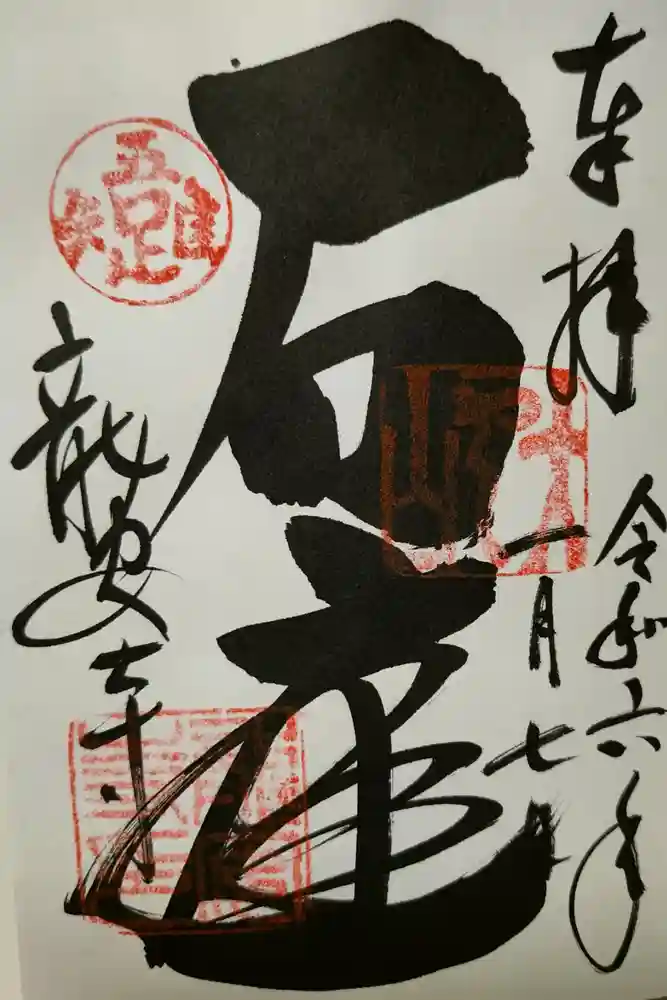 奉拝
令和六年
一月七日
石庭
吾唯足知
龍安寺